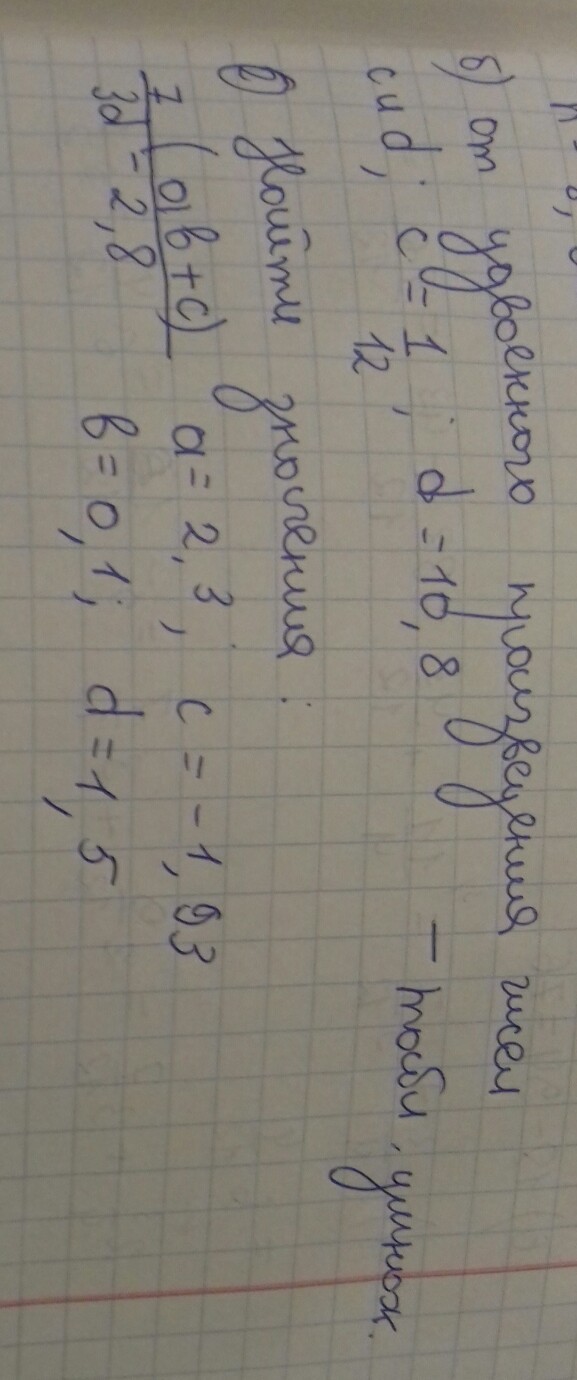 б) от удвоенного произведения чисел
c и d; c = 1/12; d = 10,8 — табл. умнож.
в) Найти значения:
7(ab+c)/3d - 2,8 a = 2,3; c = -1,93
b = 0,1; d = 1,5